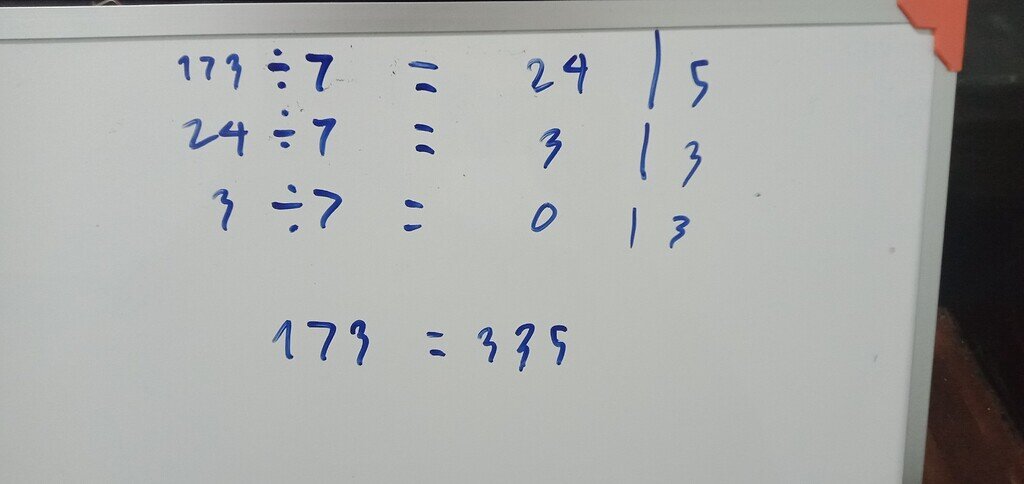 173 ÷ 7 = 24 | 5
24 ÷ 7 = 3 | 3
3 ÷ 7 = 0 | 3
173 = 335